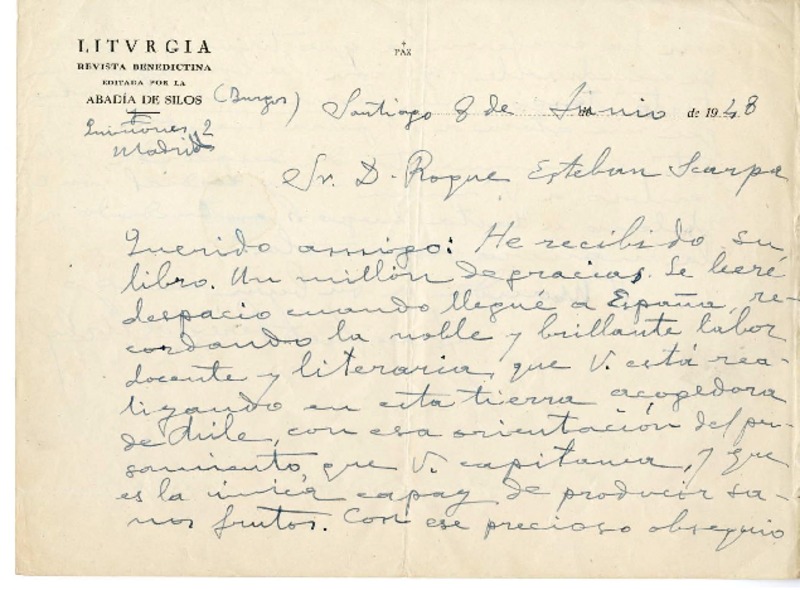 LITVRGIA
REVISTA BENEDICTINA
EDITADA POR LA
ABADÍA DE SILOS (Burgos)
PAX
Quiñones, 2
Madrid
Santiago 8 de Junio de 1948
Sr. D. Roque Esteban Scarpa
Querido amigo: He recibido su
libro. Un millón de gracias. Le leeré
despacio cuando llegué a España, re-
cordando la noble y brillante labor
docente y literaria, que V. está rea-
lizando en esta tierra acogedora
de Chile, con esa orientación del pen-
samiento, que V. capitanea, y que
es la única capaz de producir sa-
nos frutos. Con ese precioso obsequio